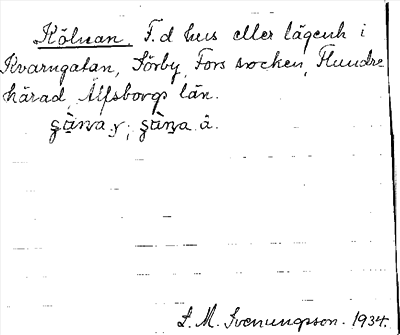 Kölnan. F.d hus eller lägenh i
Kvarngatan, Sörby, Fors socken, Flundre
härad, Älfsborgs län.
S. M. Svenungson. 1934.